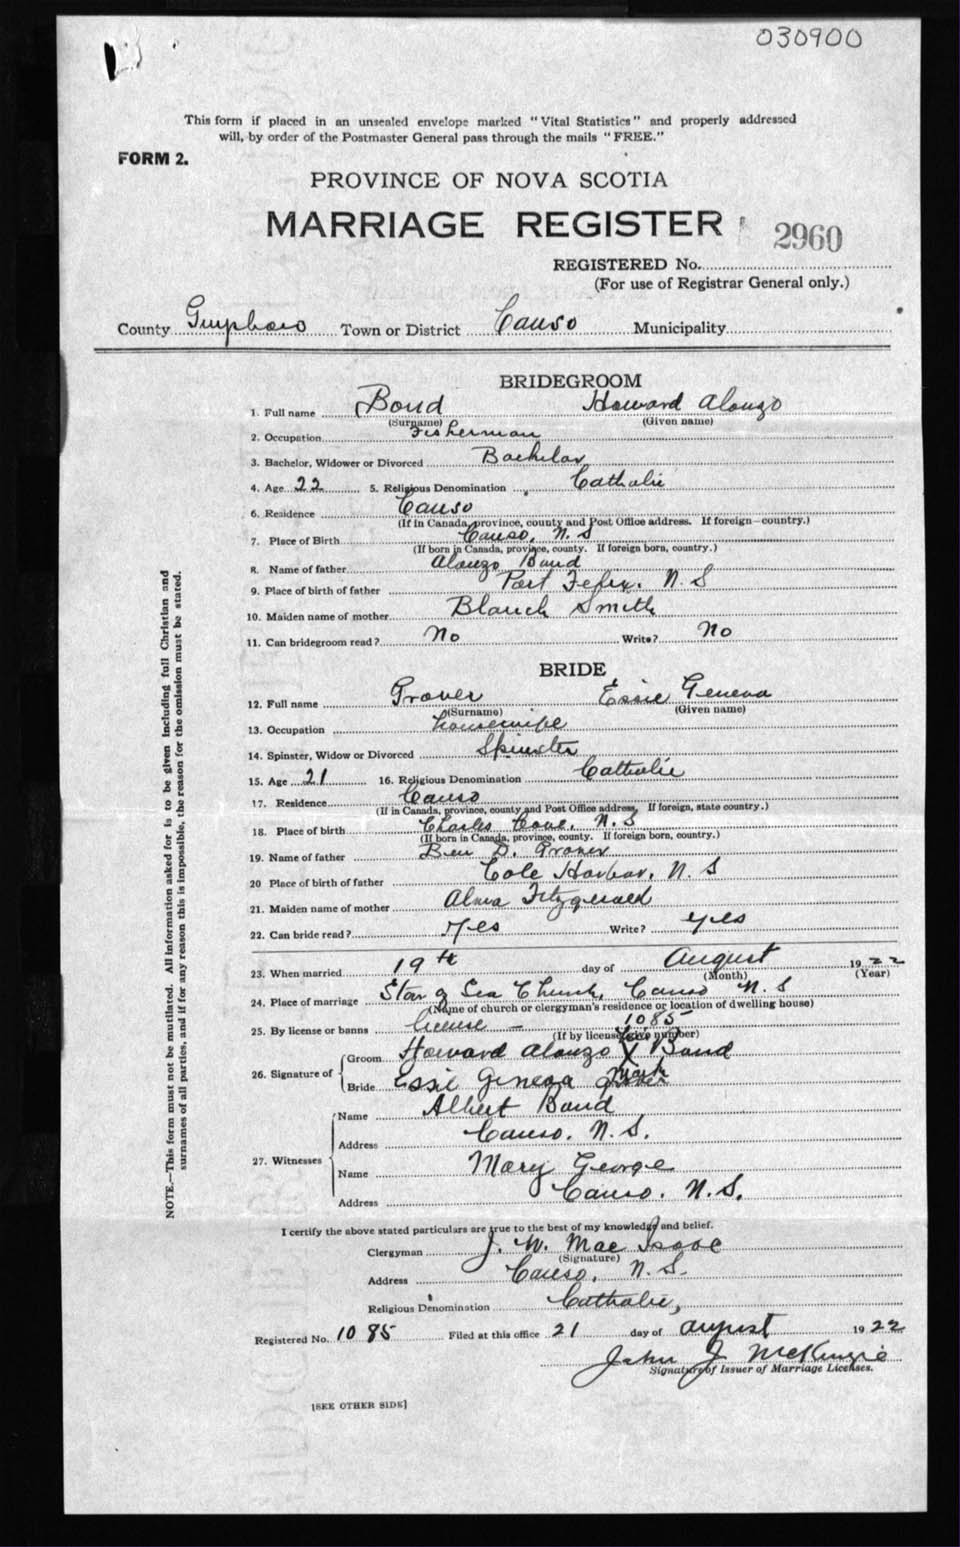 030900
This form if placed in an unsealed envelope marked "Vital Statistics" and properly addressed
will, by order of the Postmaster General pass through the mails "FREE."
FORM 2.
PROVINCE OF NOVA SCOTIA
MARRIAGE REGISTER
2960
REGISTERED No.
(For use of Registrar General only.)
County Guysboro Town or District Canso Municipality
BRIDEGROOM
1. Full name Bond Howard Alonzo
(Surname) (Given name)
2. Occupation Fisherman
3. Bachelor, Widower or Divorced Bachelor
4. Age 22 5. Religious Denomination Catholic
6. Residence Canso
(If in Canada, province, county and Post Office address. If foreign—country.)
7. Place of Birth Canso, N. S
(If born in Canada, province, county. If foreign born, country.)
8. Name of father Alonzo Bond
9. Place of birth of father Port Felix, N. S
10. Maiden name of mother Blanch Smith
11. Can bridegroom read? No Write? No
BRIDE
12. Full name Grover Essie Geneva
(Surname) (Given name)
13. Occupation housewife
14. Spinster, Widow or Divorced Spinster
15. Age 21 16. Religious Denomination Catholic
17. Residence Canso
(If in Canada, province, county and Post Office address, If foreign, state country.)
18. Place of birth Charles Cove, N. S
(If born in Canada, province, county. If foreign born, country.)
19. Name of father Ben D. Grover
20 Place of birth of father Cole Harbor, N. S
21. Maiden name of mother Alma Fitzgerald
22. Can bride read? Yes Write? yes
23. When married 19th day of August 1922
(Month) (Year)
24. Place of marriage Star of Sea Church, Canso N. S
(Name of church or clergyman's residence or location of dwelling house)
25. By license or banns license – 1085
(If by license give number)
26. Signature of
Groom Howard Alonzo X Bond
mark
Bride Essie Geneva Grover
27. Witnesses
Name Albert Bond
Address Canso, N. S.
Name Mary George
Address Canso, N. S.
I certify the above stated particulars are true to the best of my knowledge and belief.
Clergyman J. W. MacIsaac
(Signature)
Address Canso, N. S.
Religious Denomination Catholic,
Registered No. 1085 Filed at this office 21 day of August 1922
John J McKenzie
Signature of Issuer of Marriage Licenses.
[SEE OTHER SIDE]
NOTE.—This form must not be mutilated. All information asked for is to be given including full Christian and
surnames of all parties, and if for any reason this is impossible, the reason for the omission must be stated.